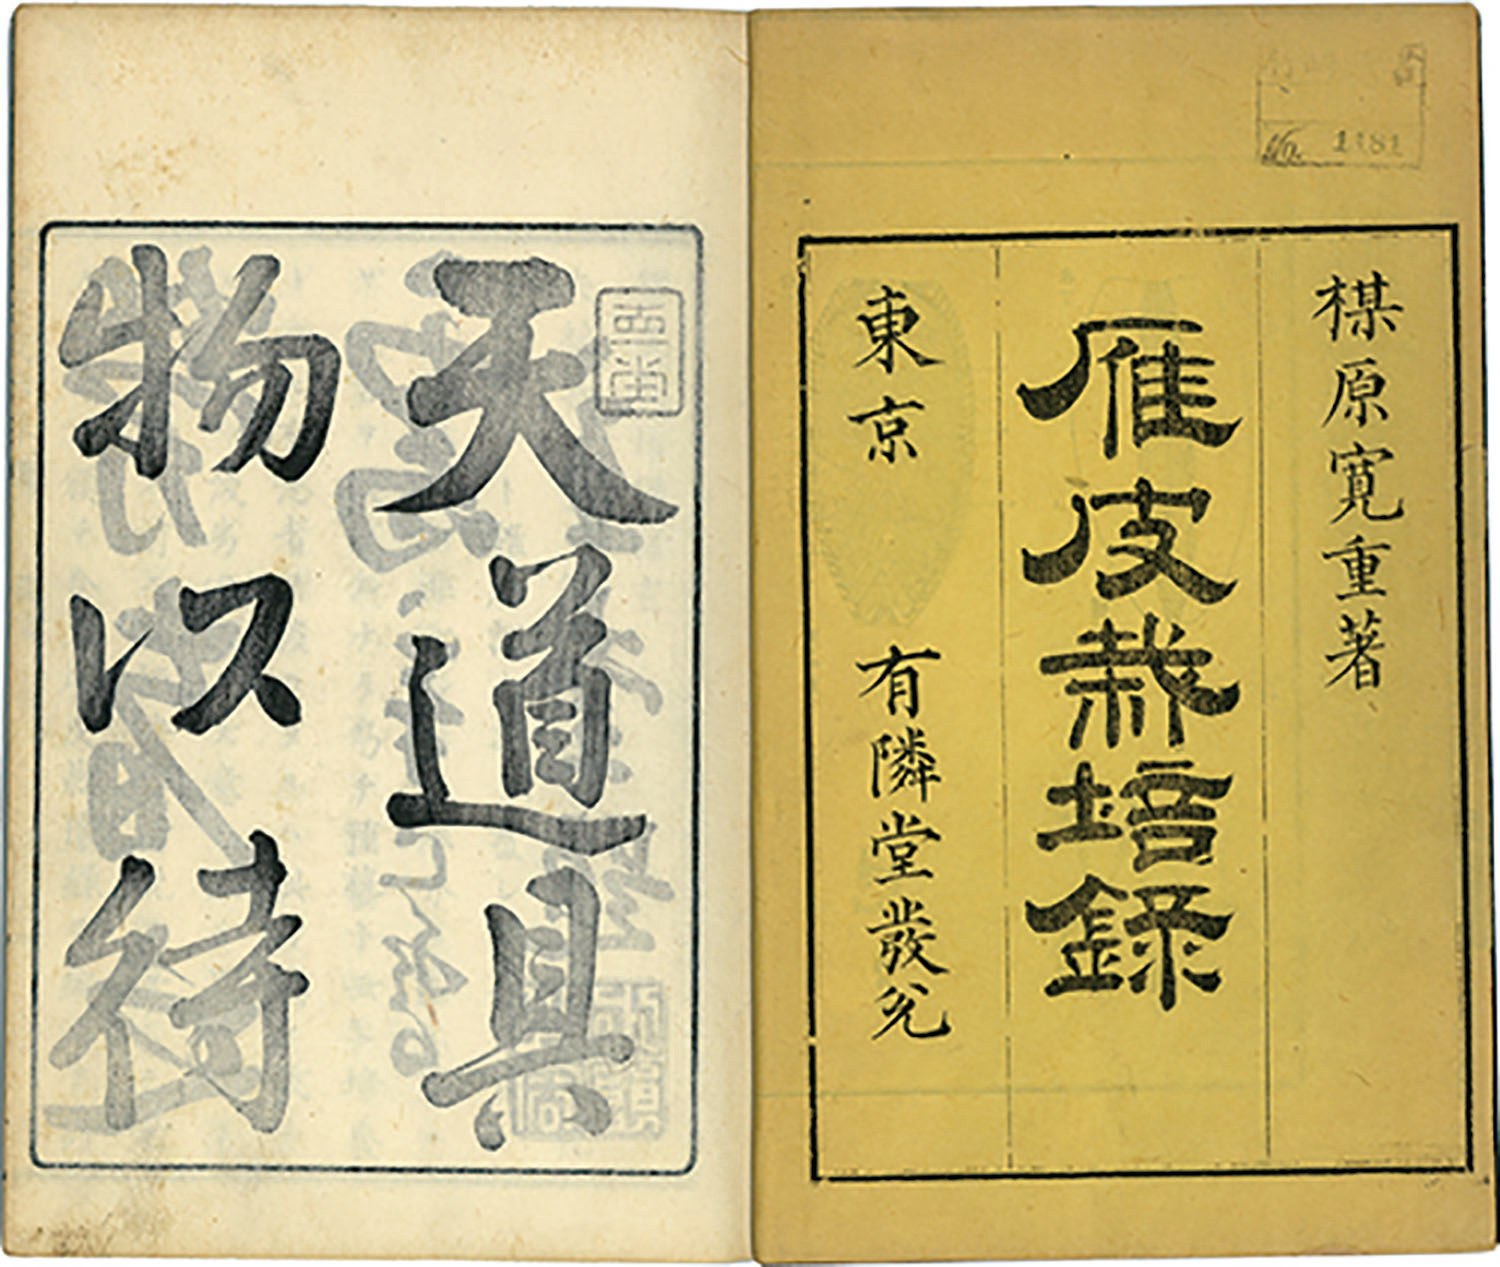 楳原寛重著
雁皮栽培録
東京 有隣堂發兌
No. 1181
天道具
物以待